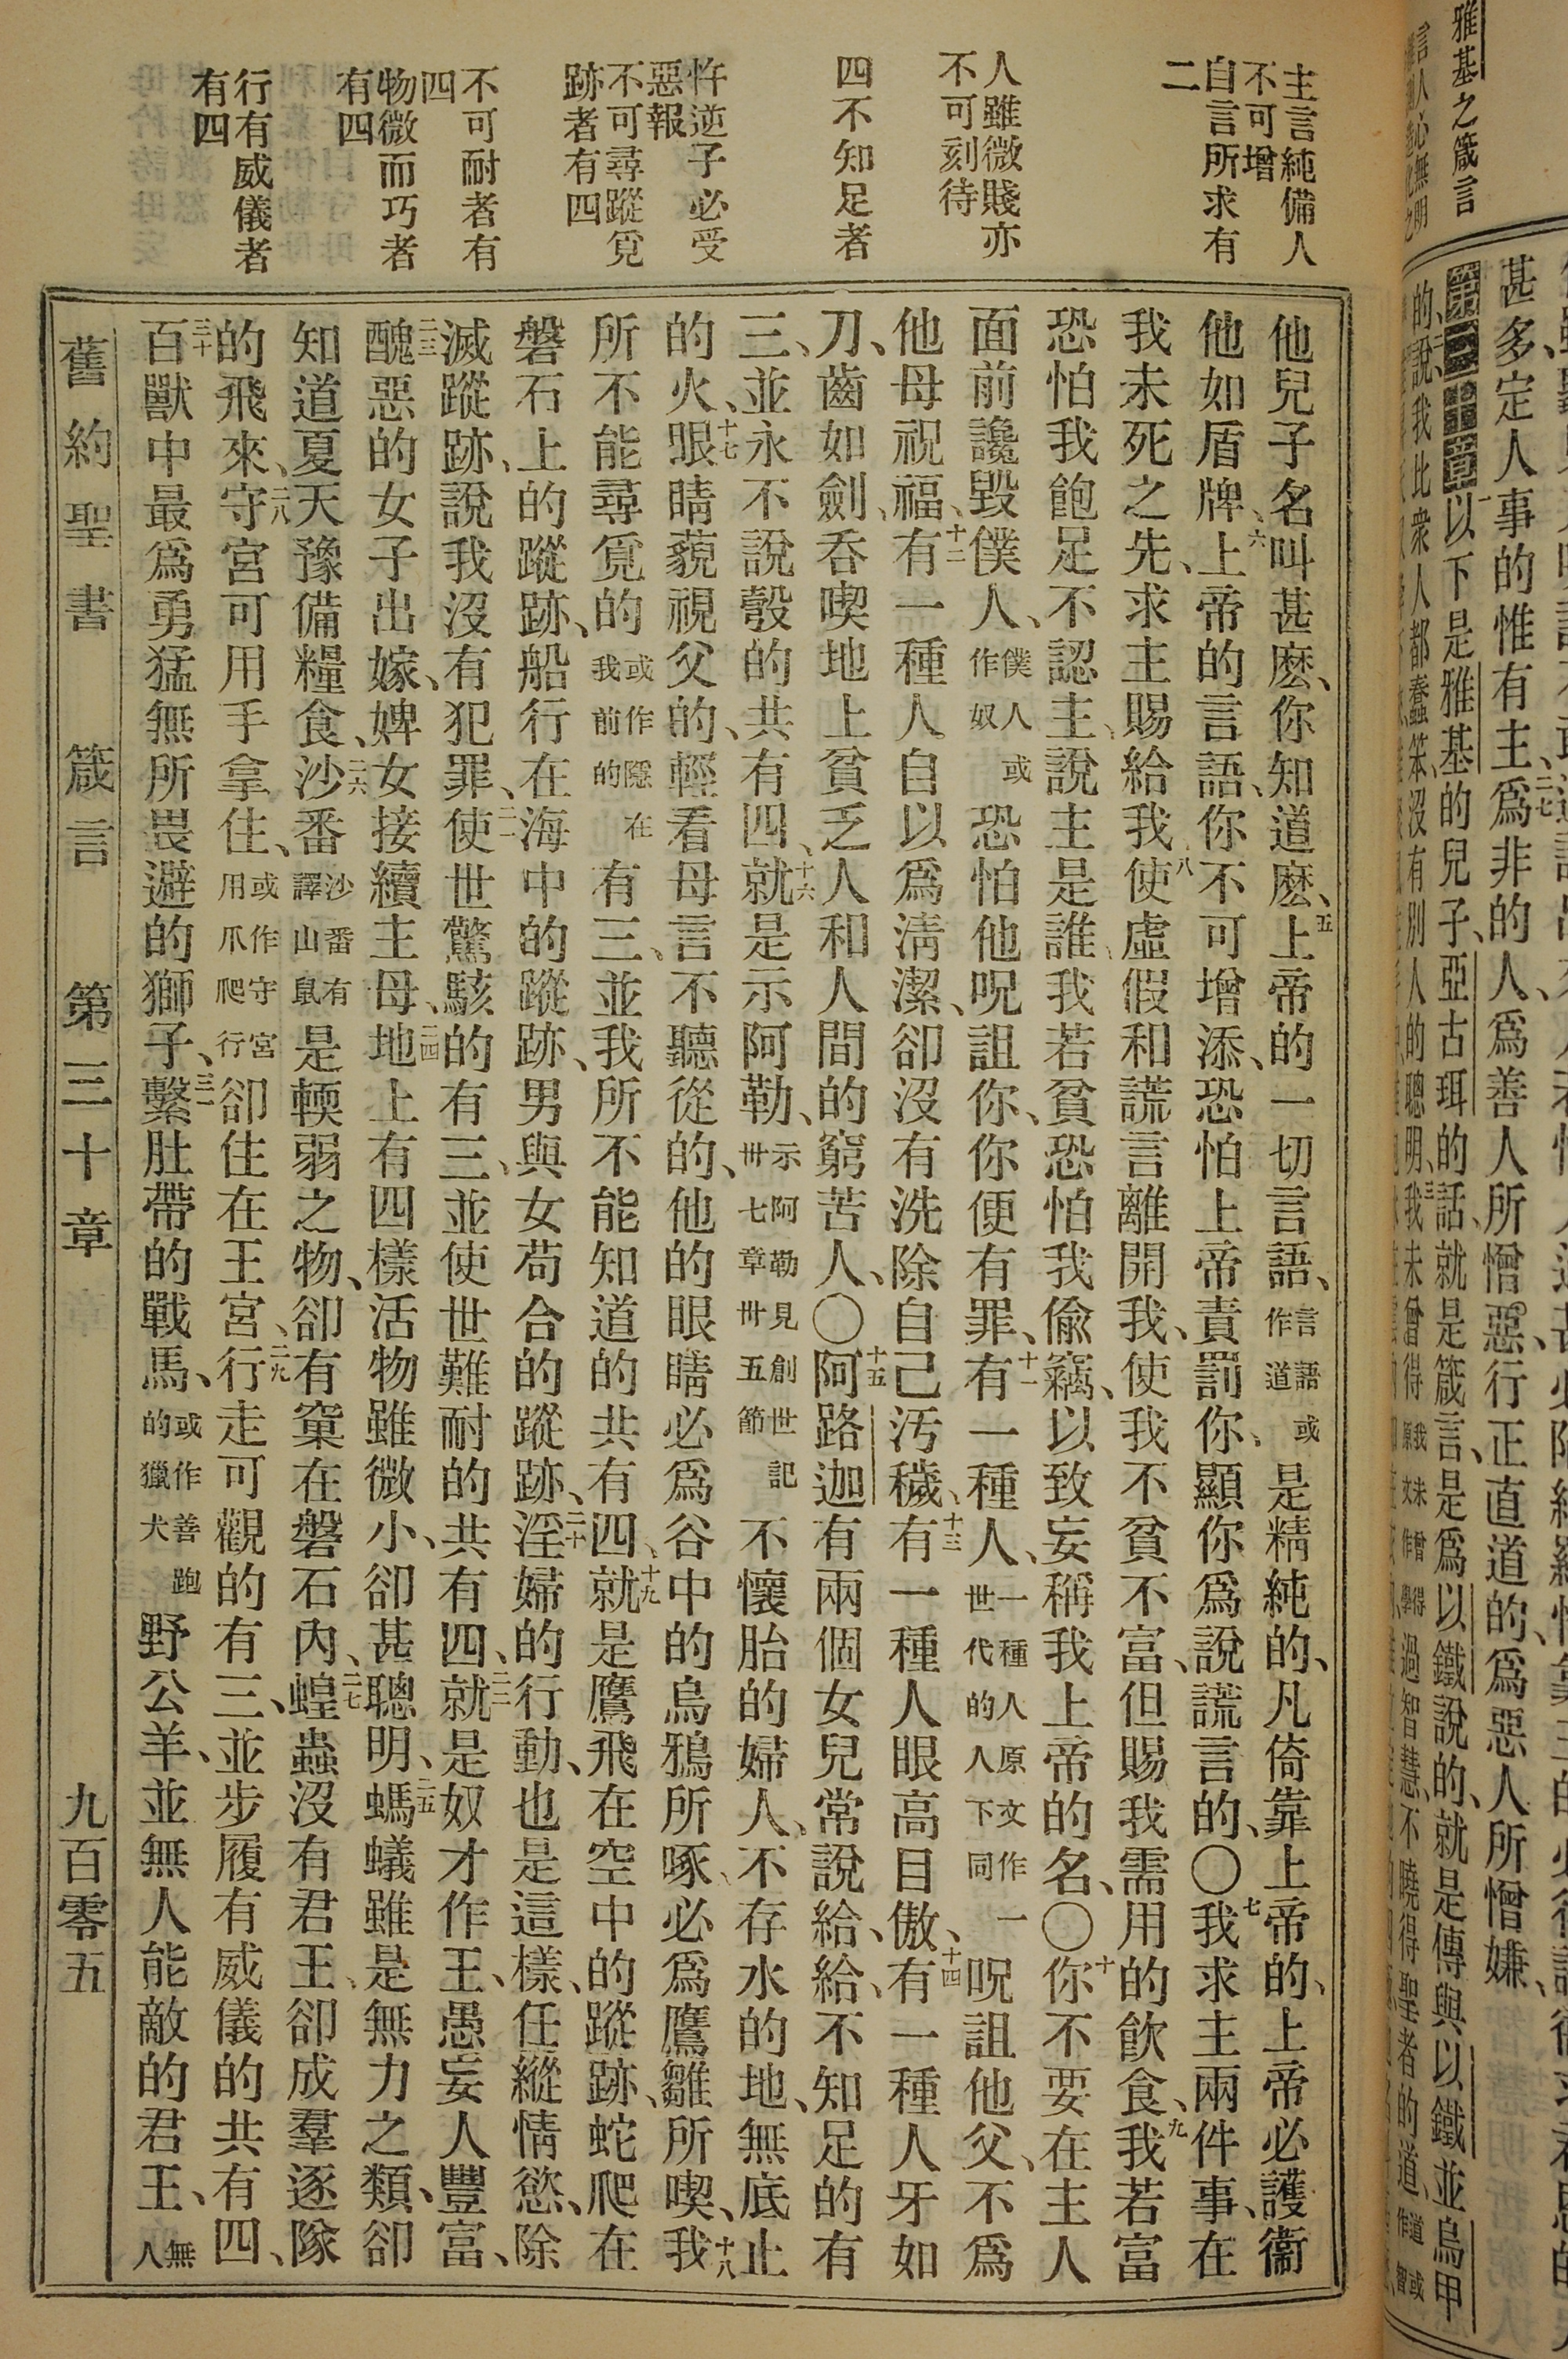 雅基之箴言
甚多定人事的惟有主、二七爲非的人、爲善人所憎惡、行正直道的、爲惡人所憎嫌、
第三十章以下是雅基的兒子、亞古珥的話、就是箴言、是爲以鐵說的、就是傳與以鐵並烏甲
的、二說我比衆人都蠢笨、沒有別人的聰明、三我未曾得我未曾得原文作學過智慧、不曉得聖者的道、道或作智
主言純備人
不可增
自言所求有
二
人雖微賤亦
不可刻待
四不知足者
忤逆子必受
惡報
不可尋蹤覓
跡者有四
不可耐者有
四
物微而巧者
有四
行有威儀者
有四
他兒子名叫甚麽、你知道麽、五上帝的一切言語、言語或作道是精純的、凡倚靠上帝的、上帝必護衞
他如盾牌、六上帝的言語、你不可增添、恐怕上帝責罰你、顯你爲說謊言的、〇七我求主兩件事、在
我未死之先、求主賜給我、八使虛假和謊言離開我、使我不貧不富、但賜我需用的飲食、九我若富
恐怕我飽足不認主、說主是誰、我若貧恐怕我偸竊、以致妄稱我上帝的名、〇十你不要在主人
面前讒毀僕人、僕人或作奴恐怕他呪詛你、你便有罪、十一有一種人、一種人原文作一世代的人下同呪詛他父、不爲
他母祝福、十二有一種人自以爲淸潔、卻沒有洗除自己汚穢、十三有一種人眼高目傲、十四有一種人牙如
刀、齒如劍、吞喫地上貧乏人和人間的窮苦人、〇十五阿路迦有兩個女兒常說給、給、不知足的有
三、並永不說彀的共有四、十六就是示阿勒、示阿勒見創世記卅七章卅五節不懷胎的婦人、不存水的地、無底止
的火、十七眼睛藐視父的、輕看母言不聽從的、他的眼睛必爲谷中的烏鴉所啄、必爲鷹雛所喫、十八我
所不能尋覓的或作隱在我前的有三、並我所不能知道的共有四、十九就是鷹飛在空中的蹤跡、蛇爬在
磐石上的蹤跡、船行在海中的蹤跡、男與女苟合的蹤跡、二十淫婦的行動、也是這樣、任縱情慾、除
滅蹤跡、說我沒有犯罪、二一使世驚駭的有三、並使世難耐的共有四、二二就是奴才作王、愚妄人豐富、
二三醜惡的女子出嫁、婢女接續主母、二四地上有四樣活物雖微小、卻甚聰明、二五螞蟻雖是無力之類、卻
知道夏天豫備糧食、二六沙番沙番有譯山鼠是輭弱之物、卻有窠在磐石內、二七蝗蟲沒有君王、卻成羣逐隊
的飛來、二八守宮可用手拿住、或作守宮用爪爬行卻住在王宮、二九行走可觀的有三、並步履有威儀的共有四、
三十百獸中最爲勇猛無所畏避的獅子、三一繫肚帶的戰馬、或作善跑的獵犬野公羊、並無人能敵的君王、無人
舊約聖書　箴言　第三十章　九百零五